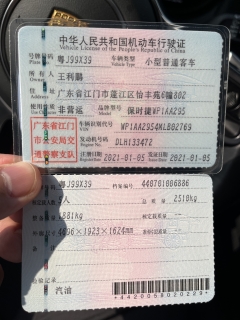 中华人民共和国机动车行驶证
Vehicle License of the People's Republic of China
号牌号码 粤J99X39 车辆类型 小型普通客车
所有人 王利鹏
住址 广东省江门市蓬江区怡丰苑6幢802
使用性质 非营运 品牌型号 保时捷WP1AA295
广东省江门
市公安局交
通警察支队
车辆识别代号 WP1AA2954MLB02769
发动机号码 DLH133472
注册日期 2021-01-05 发证日期 2021-01-05
号牌号码 粤J99X39 档案编号 440701606886
人 总质量 2510kg
整备质量 1881kg 核定载质量
外廓尺寸 4696×1923×1624mm 准牵引总质量
汽油